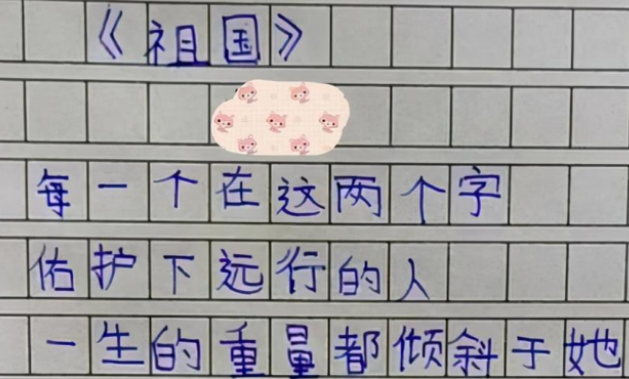 《祖国》
每一个在这两个字
佑护下远行的人
一生的重量都倾斜于她